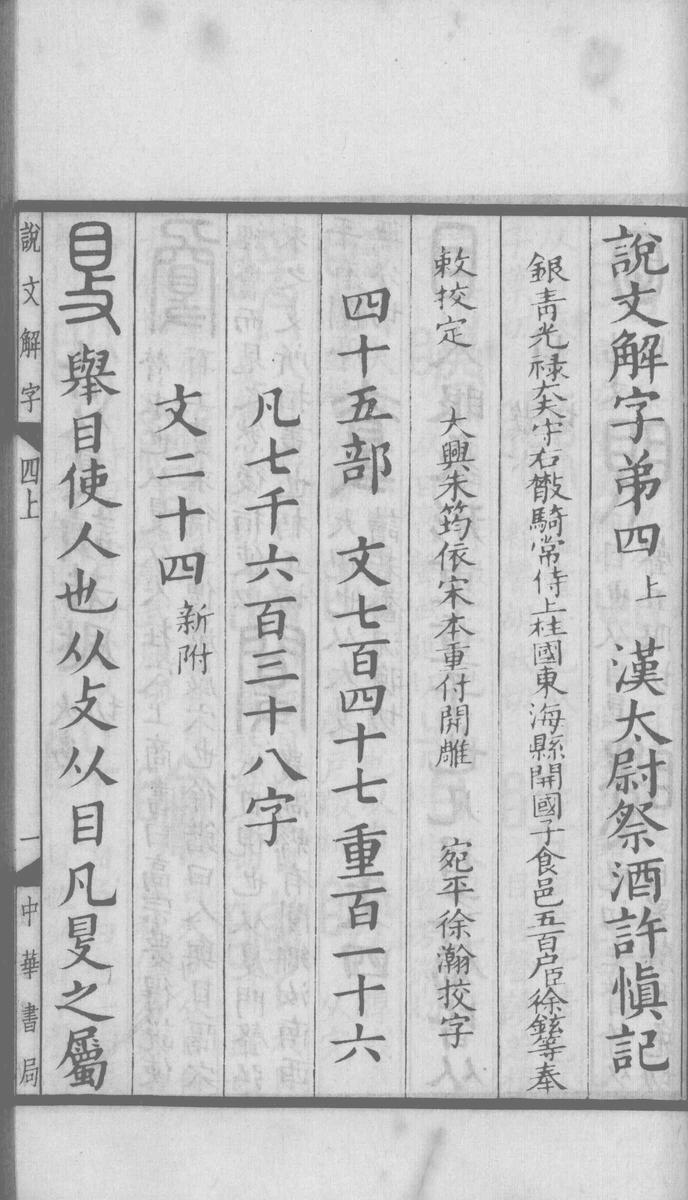 說文解字弟四上　漢太尉祭酒許慎記
銀青光祿大夫守右散騎常侍上柱國東海縣開國子食邑五百户臣徐鉉等奉
敕挍定　大興朱筠依宋本重付開雕　宛平徐瀚挍字
四十五部　文七百四十七　重百一十六
凡七千六百三十八字
文二十四新附
𥄎舉目使人也从攴从目凡𥄎之屬
說文解字　四上　一　中華書局